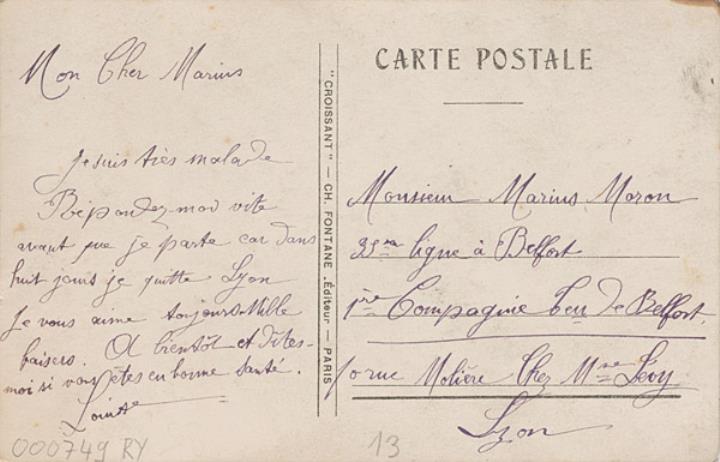 Mon Cher Marius
Je suis très malade
Répondez-moi vite
avant que je parte car dans
huit jours je quitte Lyon
Je vous aime toujours Mille
baisers. A bientôt et dites-
moi si vous êtes en bonne santé.
"CROISSANT" — CH. FONTANE, Éditeur — PARIS
CARTE POSTALE
Monsieur Marius Moron
35me ligne à Belfort
1ère Compagnie de Belfort.
rue Molière Chez Mme Levy
Lyon
000749 RY
13